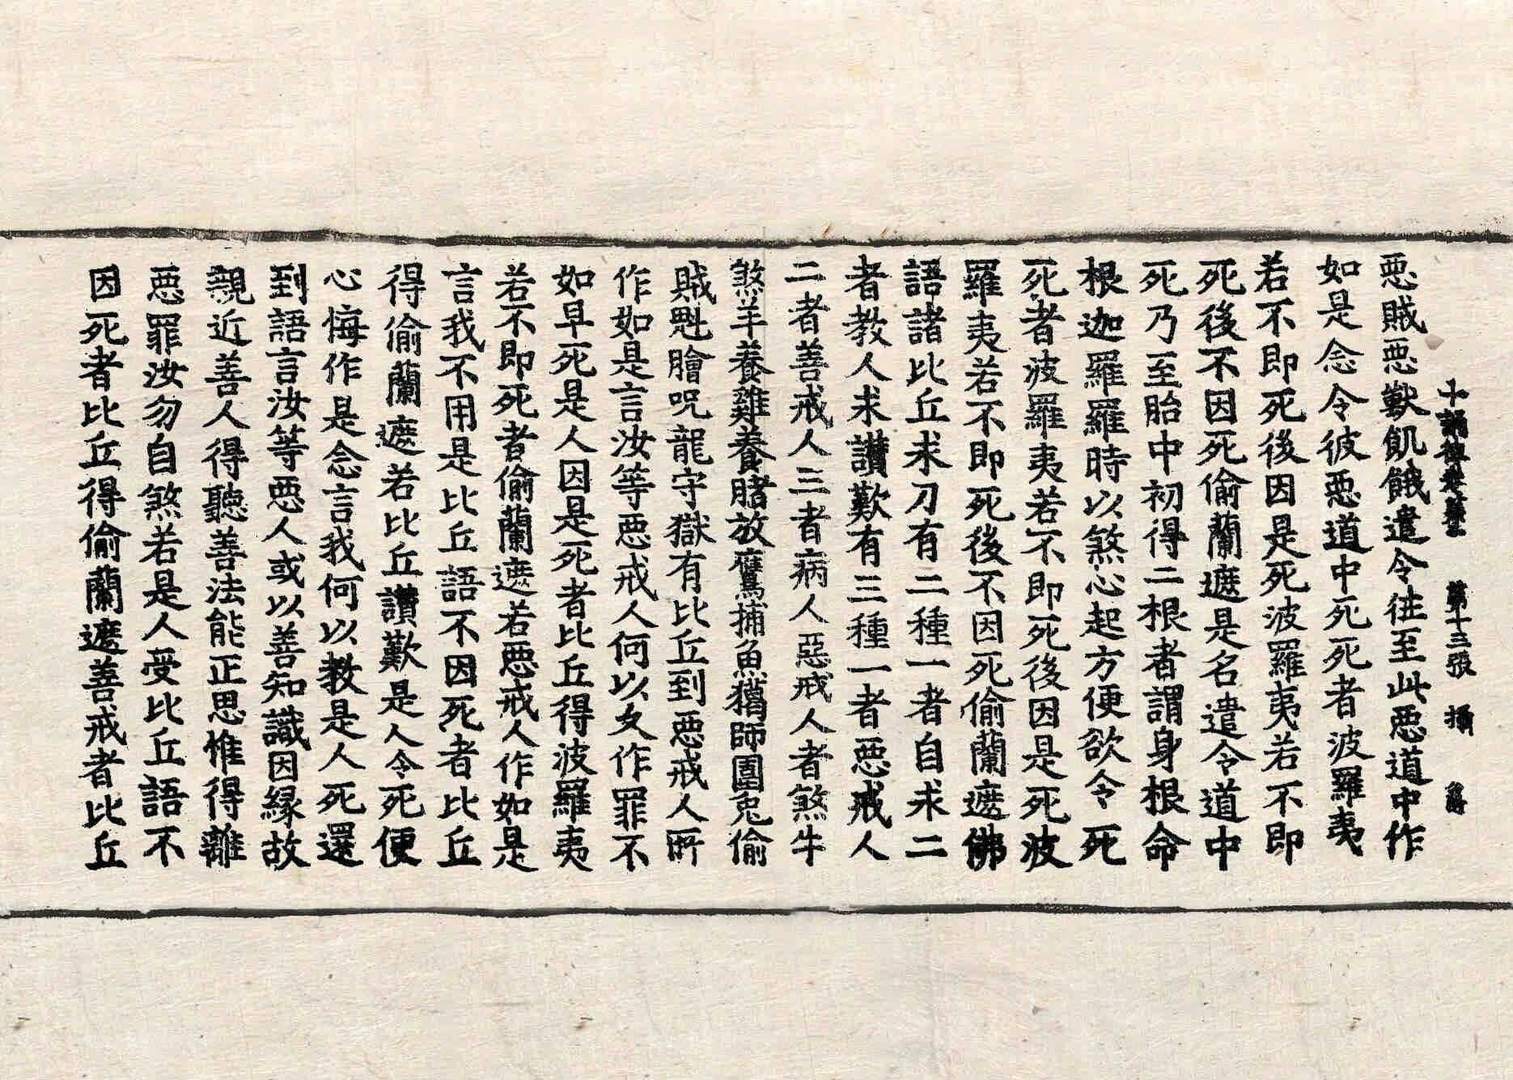 十誦律卷第二 第十三張 攝
惡賊惡獸飢餓遣令往至此惡道中作
如是念令彼惡道中死死者波羅夷
若不即死後因是死波羅夷若不即
死後不因死偷蘭遮是名遣令道中
死乃至胎中初得二根者謂身根命
根迦羅羅時以煞心起方便欲令死
死者波羅夷若不即死後因是死波
羅夷若不即死後不因死偷蘭遮佛
語諸比丘求刀有二種一者自求二
者教人求讚歎有三種一者惡戒人
二者善戒人三者病人惡戒人者煞牛
煞羊養雞養豬放鷹捕魚獵師圍兔偷
賊魁膾呪龍守獄有比丘到惡戒人所
作如是言汝等惡戒人何以久作罪不
如早死是人因是死者比丘得波羅夷
若不即死者偷蘭遮若惡戒人作如是
言我不用是比丘語不因死者比丘
得偷蘭遮若比丘讚歎是人令死便
心悔作是念言我何以教是人死還
到語言汝等惡人或以善知識因緣故
親近善人得聽善法能正思惟得離
惡罪汝勿自煞若是人受比丘語不
因死者比丘得偷蘭遮善戒者比丘